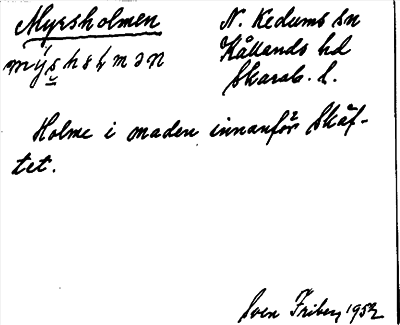 Myrsholmen N. Kedums sn
mýs̬hsḷmən Kållands hd
Skarab. l.
Holme i maden innanför Skäf-
tet.
Sven Friberg 1952